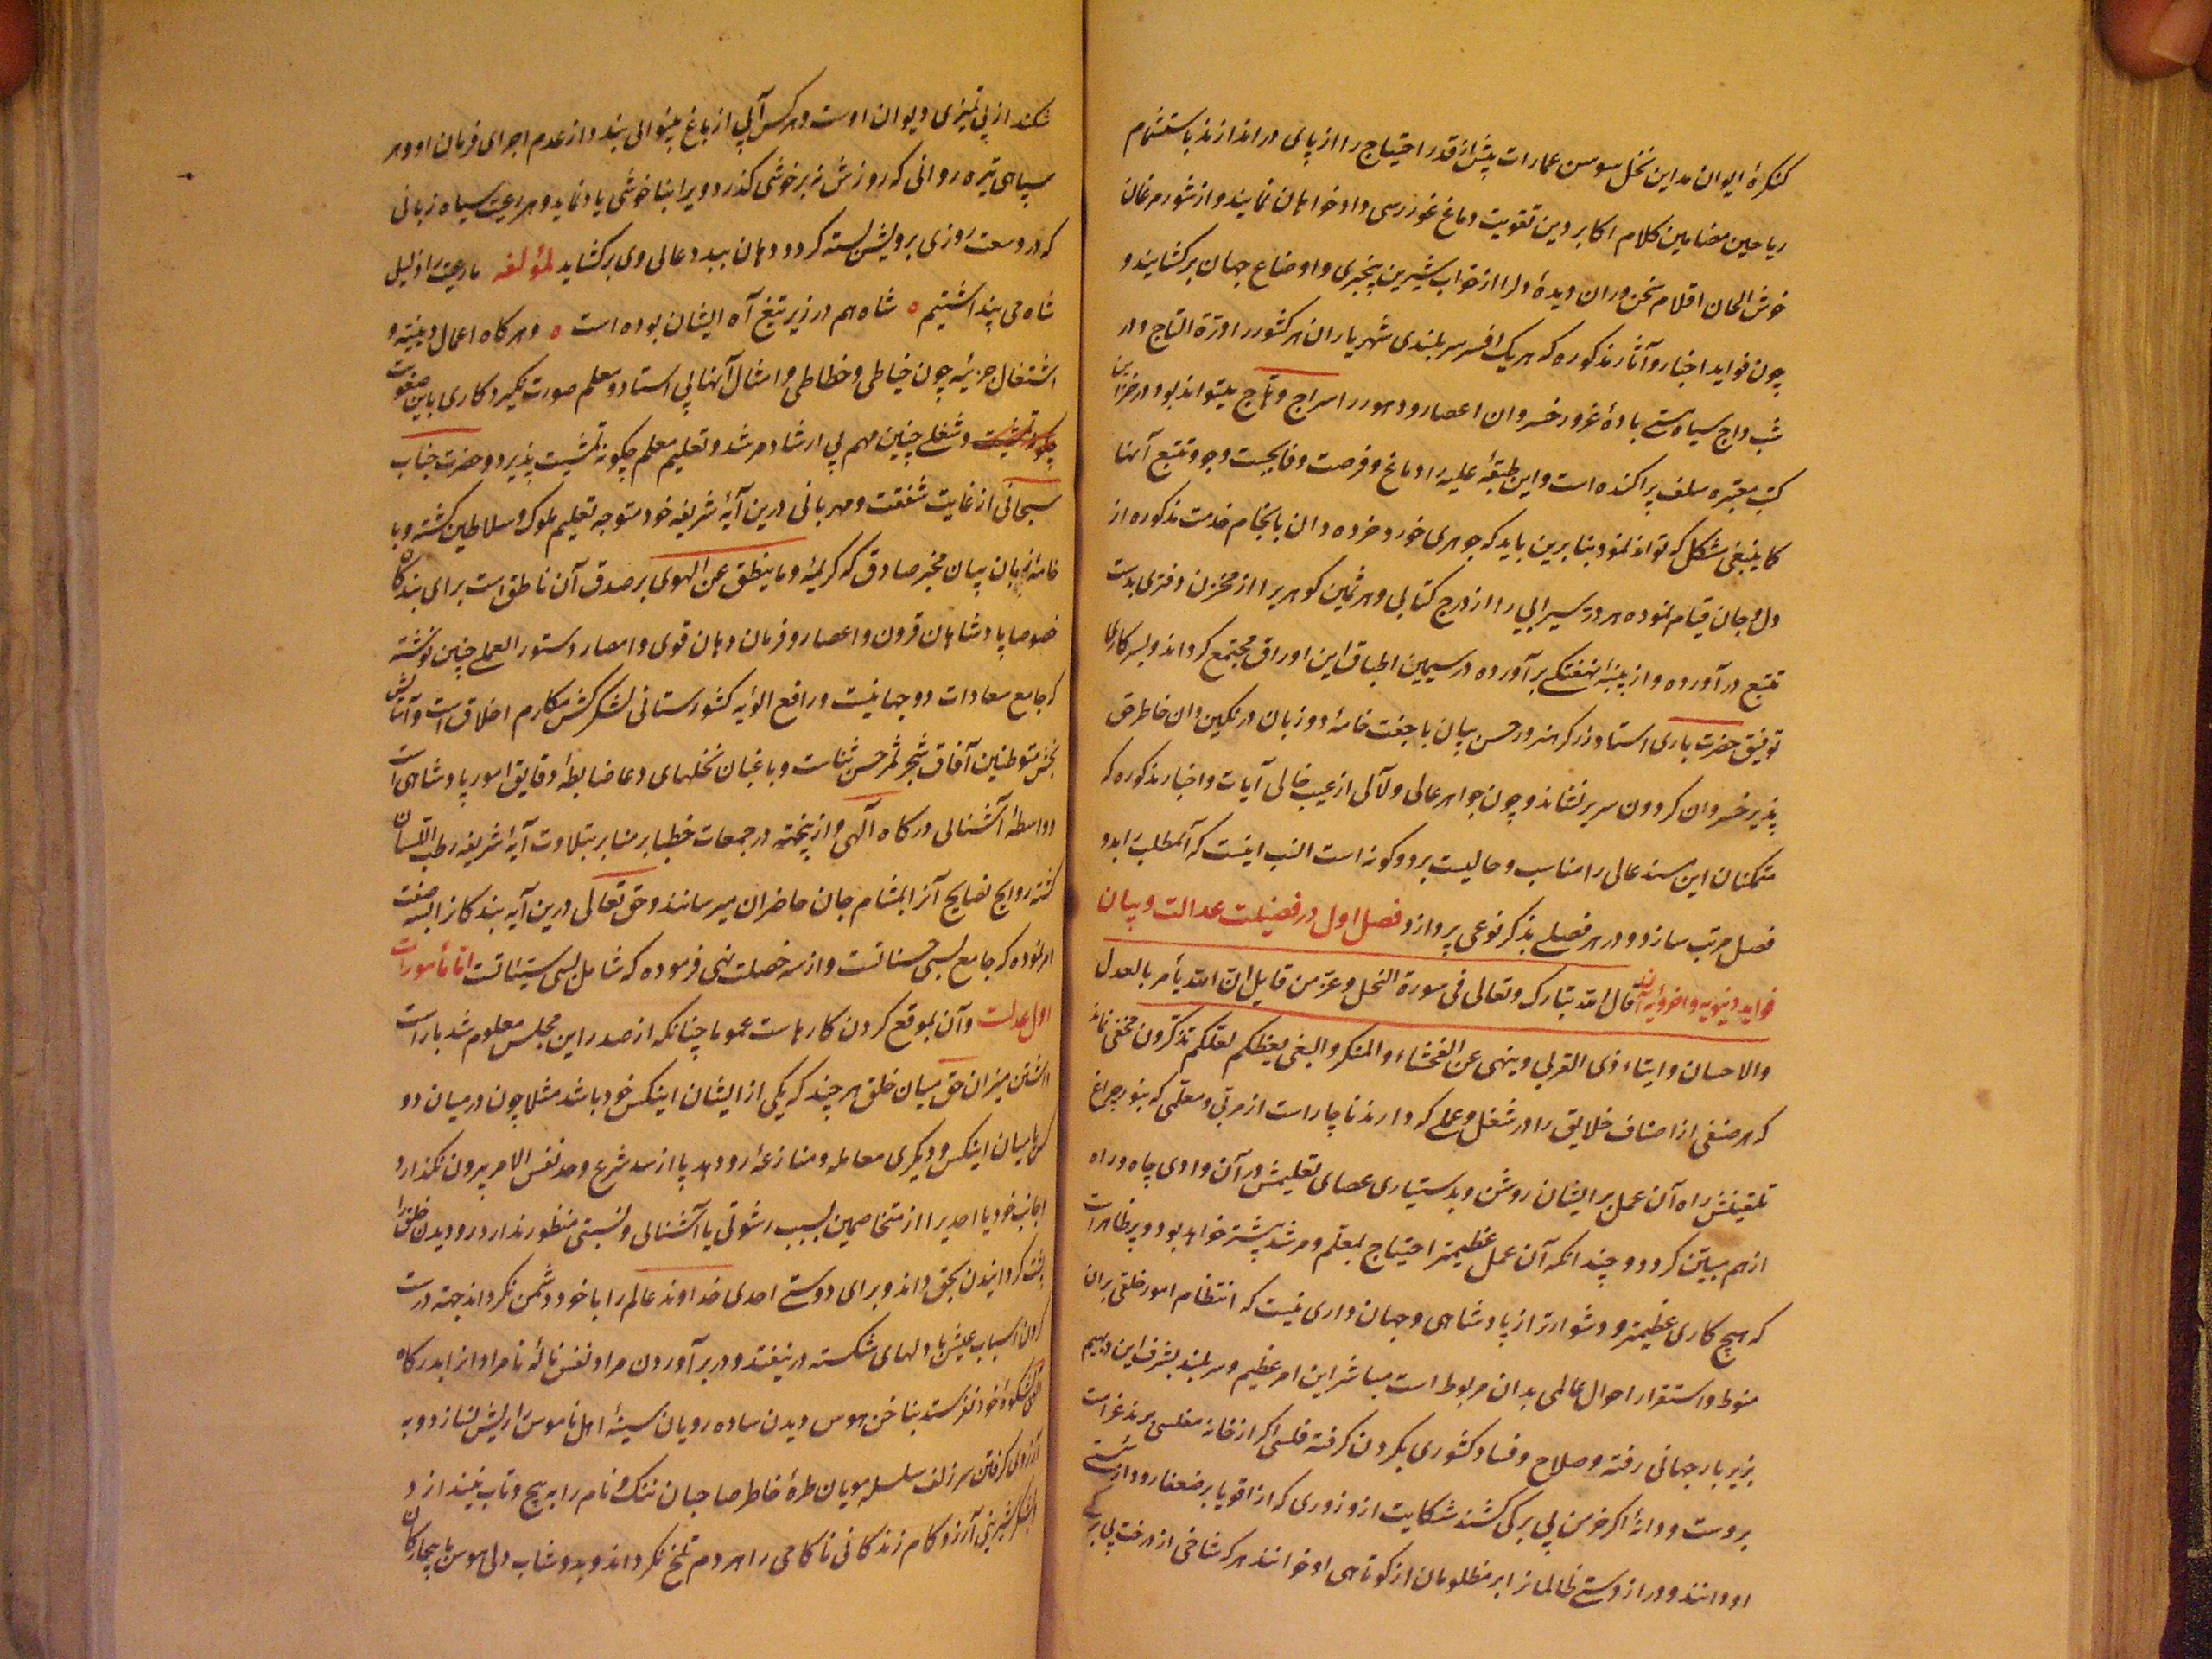 کنکرهٔ ایوان مداین نخل سوسن عمارات پیش از قدر احتیاج را از پای در اندازند باستشمام
ریاحین مضامین کلام اکابر دین تقویت دماغ غوررسی دادخواهان نمایند و از شور مرغان
خوش الحان اقلام سخن وران دیدهٔ دل را از خواب شیرین بیخبری و اوضاع جهان برکشایند و
چون فواید اخبار و آثار مذکوره که هر یک افسر سربلندی شهریاران هر کشور را درة التاج و در
شب داج سیاه مستی بادهٔ غرور خسروان اعصار و دهور را سراج وهاج میتواند بود در خزاین
کتب معتبره سلف پراکنده است و این طبقهٔ علیه را دماغ و فرصت وفا بجست وجو و تتبع آنها
کما ینبغی مشکل که تواند نمود بنابرین باید که جوهری خرد خرده دان بانجام خدمت مذکوره از
دل و جان قیام نموده هر در سیرابی را از درج کتابی و هر ثمین کوهری را از مخزن دفتری بدست
تتبع در آورده و از بینهٔ نهفتکی برآورده در سیمین اطباق این اوراق مجتمع کرداند و بسرکاری
توفیق حضرت باری استاد زرکر هنرور حسن بیان با جفت خامهٔ دو زبان در نکین دان خاطر حق
پذیر خسروان کردون سریر نشاند و چون جواهر عالی و لآلی از عیب خالی آیات و اخبار مذکوره که
متمکنان این مسند عالی را مناسب و حالیست بر دو کونه است انسب اینست که آنمطلب را بدو
فصل مرتب سازد و در هر فصلی بذکر نوعی پردازد فصل اول در فضیلت عدالت و بیان
فواید دنیویه و اخرویه آن قال الله تبارک و تعالی فی سورة النحل و عز من قایل ان الله یأمر بالعدل
والاحسان و ایتاء ذی القربی و ینهی عن الفحشاء والمنکر والبغی یعظکم لعلکم تذکرون مخفی نماند
که هر صنفی از اصناف خلایق را در شغل و عملی که دارند ناچار است از مربی و معلمی که بنور چراغ
تلقینش راه آن عمل بر ایشان روشن و بدستیاری عصای تعلیمش در آن وادی چاه و راه
از هم مبین کردد و چندانکه آن عمل عظیمتر احتیاج بمعلم و مرشد بیشتر خواهد بود و بر ظاهر است
که هیچ کاری عظیمتر و دشوارتر از پادشاهی و جهان داری نیست که انتظام امور خلقی بران
منوط و استقرار احوال عالمی بدان مربوط است مباشر این امر عظیم و سربلند بشرف این دیهیم
بزیر بار جهانی رفته و صلاح و فساد کشوری بکردن کرفته فلسی اکر از خانه مفلسی برند غرامت
بروست و دانهٔ اکر خرمن بی برکی کشند شکایت ازو زوری که از اقویا بر ضعفا رود از سستی
او دانند و دراز دستی ظالمانرا بر مظلومان از کوتاهی او خوانند هر که شاخی از درخت بی برکی
شکند از بی تمیزی دیوان اوست و هر کس آبی از باغ بینوایی بندد از عدم اجرای فرمان او و هر
سپاهی تیره روانی که روزش نه بر خوشی کذرد ویرا بناخوشی یاد نماید و هر رعیت سیاه زبانی
که در وسعت روزی برویش بسته کردد دهان ببد دعایی وی برکشاید لمؤلفه ما رعیت را ذلیل
شاه می پنداشتیم ه شاه هم در زیر تیغ آه ایشان بوده است ه و هر کاه اعمال دینیه و
اشتغال جزئیه چون خیاطی و خطاطی و امثال آنها بی استاد و معلم صورت نکیرد کاری باین صعوبت
و شغلی چنین مهم بی ارشاد مرشد و تعلیم معلم چکونه تمشیت پذیرد و حضرت جناب
سبحانی از غایت شفقت و مهربانی درین آیهٔ شریفه خود متوجه تعلیم ملوک و سلاطین کشته و با
خامهٔ زبان بیان مخبر صادق که کریمهٔ و ما ینطق عن الهوی بر صدق آن ناطق است برای بندکان
خصوصا پادشاهان قرون و اعصار و فرمان دهان قوی و امصار دستور العملی چنین نوشته
که جامع سعادات دو جهانیست و رافع الویهٔ کشورستانی لشکر کشش مکارم اخلاق است و آتالش
بخش متوطنین آفاق شجر ثمر حسن ثناست و باغبان نخلهای دعا ضابطهٔ دقایق امور پادشاهی است
و واسطهٔ آشنایی درکاه الهی و ازینجهته در جمعات خطبا بر منابر بتلاوت آیهٔ شریفه رطب اللسان
کشته روایح نصایح آنرا بمشام جان حاضران میرسانند و حق تعالی درین آیه بندکانرا بسه صفت
امر نموده که جامع بسی حسناتست و از سه خصلت نهی فرموده که شامل بسی سیئاتست اما مأمورات
اول عدلست و آن بموقع کردن کارهاست عموما چنانکه از صدر این مجلس معلوم شد باراست
داشتن میزان حق میان خلق هر چند که یکی از ایشان اینکس خود باشد مثلا چون در میان دو
کس یا میان اینکس و دیکری معامله و منازعهٔ رو دهد پا از سد شرع و حد نفس الامر بیرون نکذارد
و جانب خود یا احدیرا از متخاصمین بسبب رشوتی یا آشنایی و نسبتی منظور ندارد رو دیدن خلق را
پشت کردانیدن بحق داند و برای دوستی احدی خداوند عالم را با خود دشمن نکرداند جهته درست
کردن اسباب عیش پا دلهای شکسته در نیفتد و در برآوردن مراد نفس نالهٔ نامرادانرا بدرکاه
الهی بشکوهٔ خود نفرستد بناخن هوس دیدن ساده رویان سینهٔ اهل ناموس را ریش نسازد و به
آرزوی کرفتن سر زلف سلسله مویان طرهٔ خاطر صاحبان ننک و نام را به پیچ و تاب نیندازد
بشکر شیرینی آرزو کام زندکانی ناکامی را هر دم تلخ نکرداند و بدوشاب دلی هوس با بیچارکان